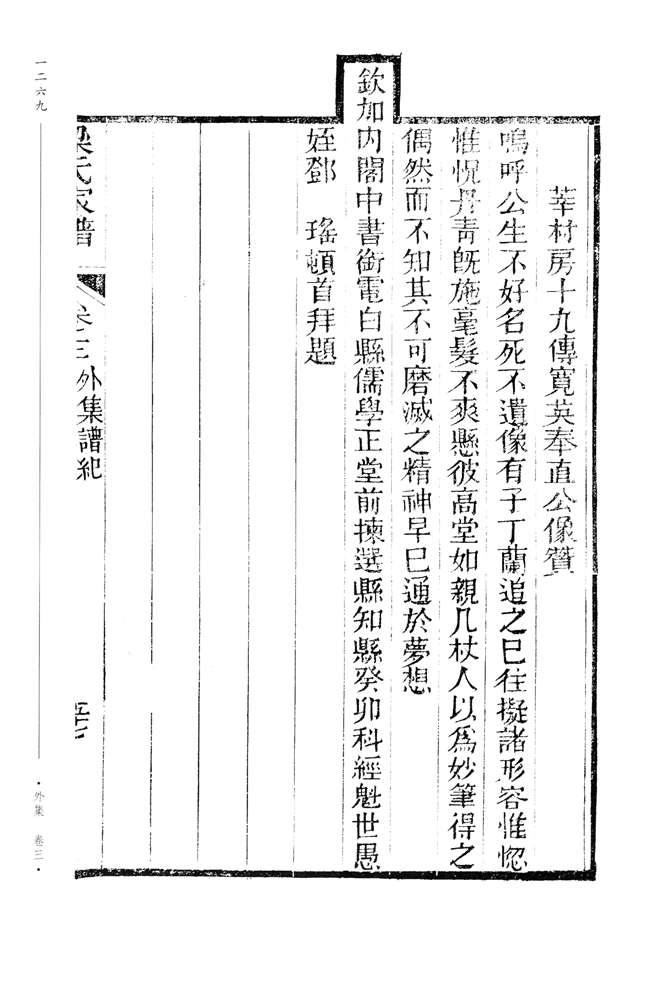 莘村房十九傳寬英奉直公像贊
嗚呼公生不好名死不遺像有子丁蘭追之已往擬諸形容惟惚
惟怳丹青旣施毫髮不爽懸彼高堂如親几杖人以爲妙筆得之
偶然而不知其不可磨滅之精神早已通於夢想
欽加內閣中書銜電白縣儒學正堂前揀選縣知縣癸卯科經魁世愚
姪鄧　瑤頓首拜題
梁氏家譜　卷三外集譜紀　五七
一二六九
·外集　卷三·